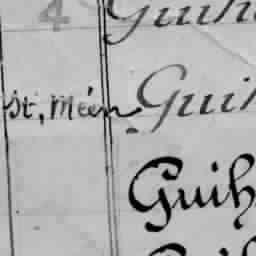 4 Guih
St, Méen Guih
Guih